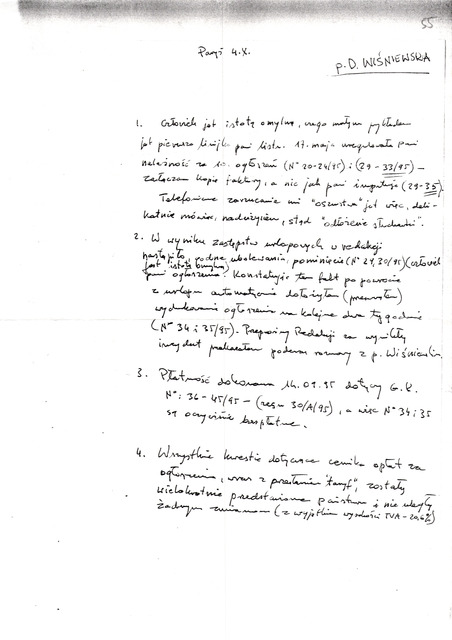 55
Paryż 4.X.
p. D. WIŚNIEWSKA
1. Człowiek jest istotą omylną, czego małym przykładem
jest pierwsza linijka pani listu. 17. maja uregulowała pani
należność za 10. ogłoszeń (N° 20-24/95) i (29-33/95) –
załączam kopię faktury, a nie jak pani imputuje (29-35).
Telefoniczne zarzucanie mi "oszustwa" jest więc, deli-
katnie mówiąc, nadużyciem, stąd "odłożenie słuchawki".
2. W wyniku zastępstw urlopowych w redakcji
nastąpiło, godne ubolewania, pominięcie (N° 29, 30/95) (człowiek
jest istotą omylną)
pani ogłoszenia. Konstatując ten fakt po powrocie
z urlopu automatycznie dołożyłem (przeniosłem)
wydrukowanie ogłoszenia na kolejne dwa tygodnie
(N° 34 i 35/95). Przeprosiny Redakcji za wynikły
incydent przekazałem podczas rozmowy z p. Wiśniewskim.
3. Płatność dokonana 14.09.95 dotyczy G.K.
N°: 36-45/95 – (rach. 30/A/95), a więc N° 34 i 35
są oczywiście bezpłatne.
4. Wszystkie kwestie dotyczące cennika opłat za
ogłoszenia, wraz z przesłaniem "taryf", zostały
wielokrotnie przedstawione państwu i nie uległy
żadnym zmianom (z wyjątkiem wysokości TVA - 20,6%)